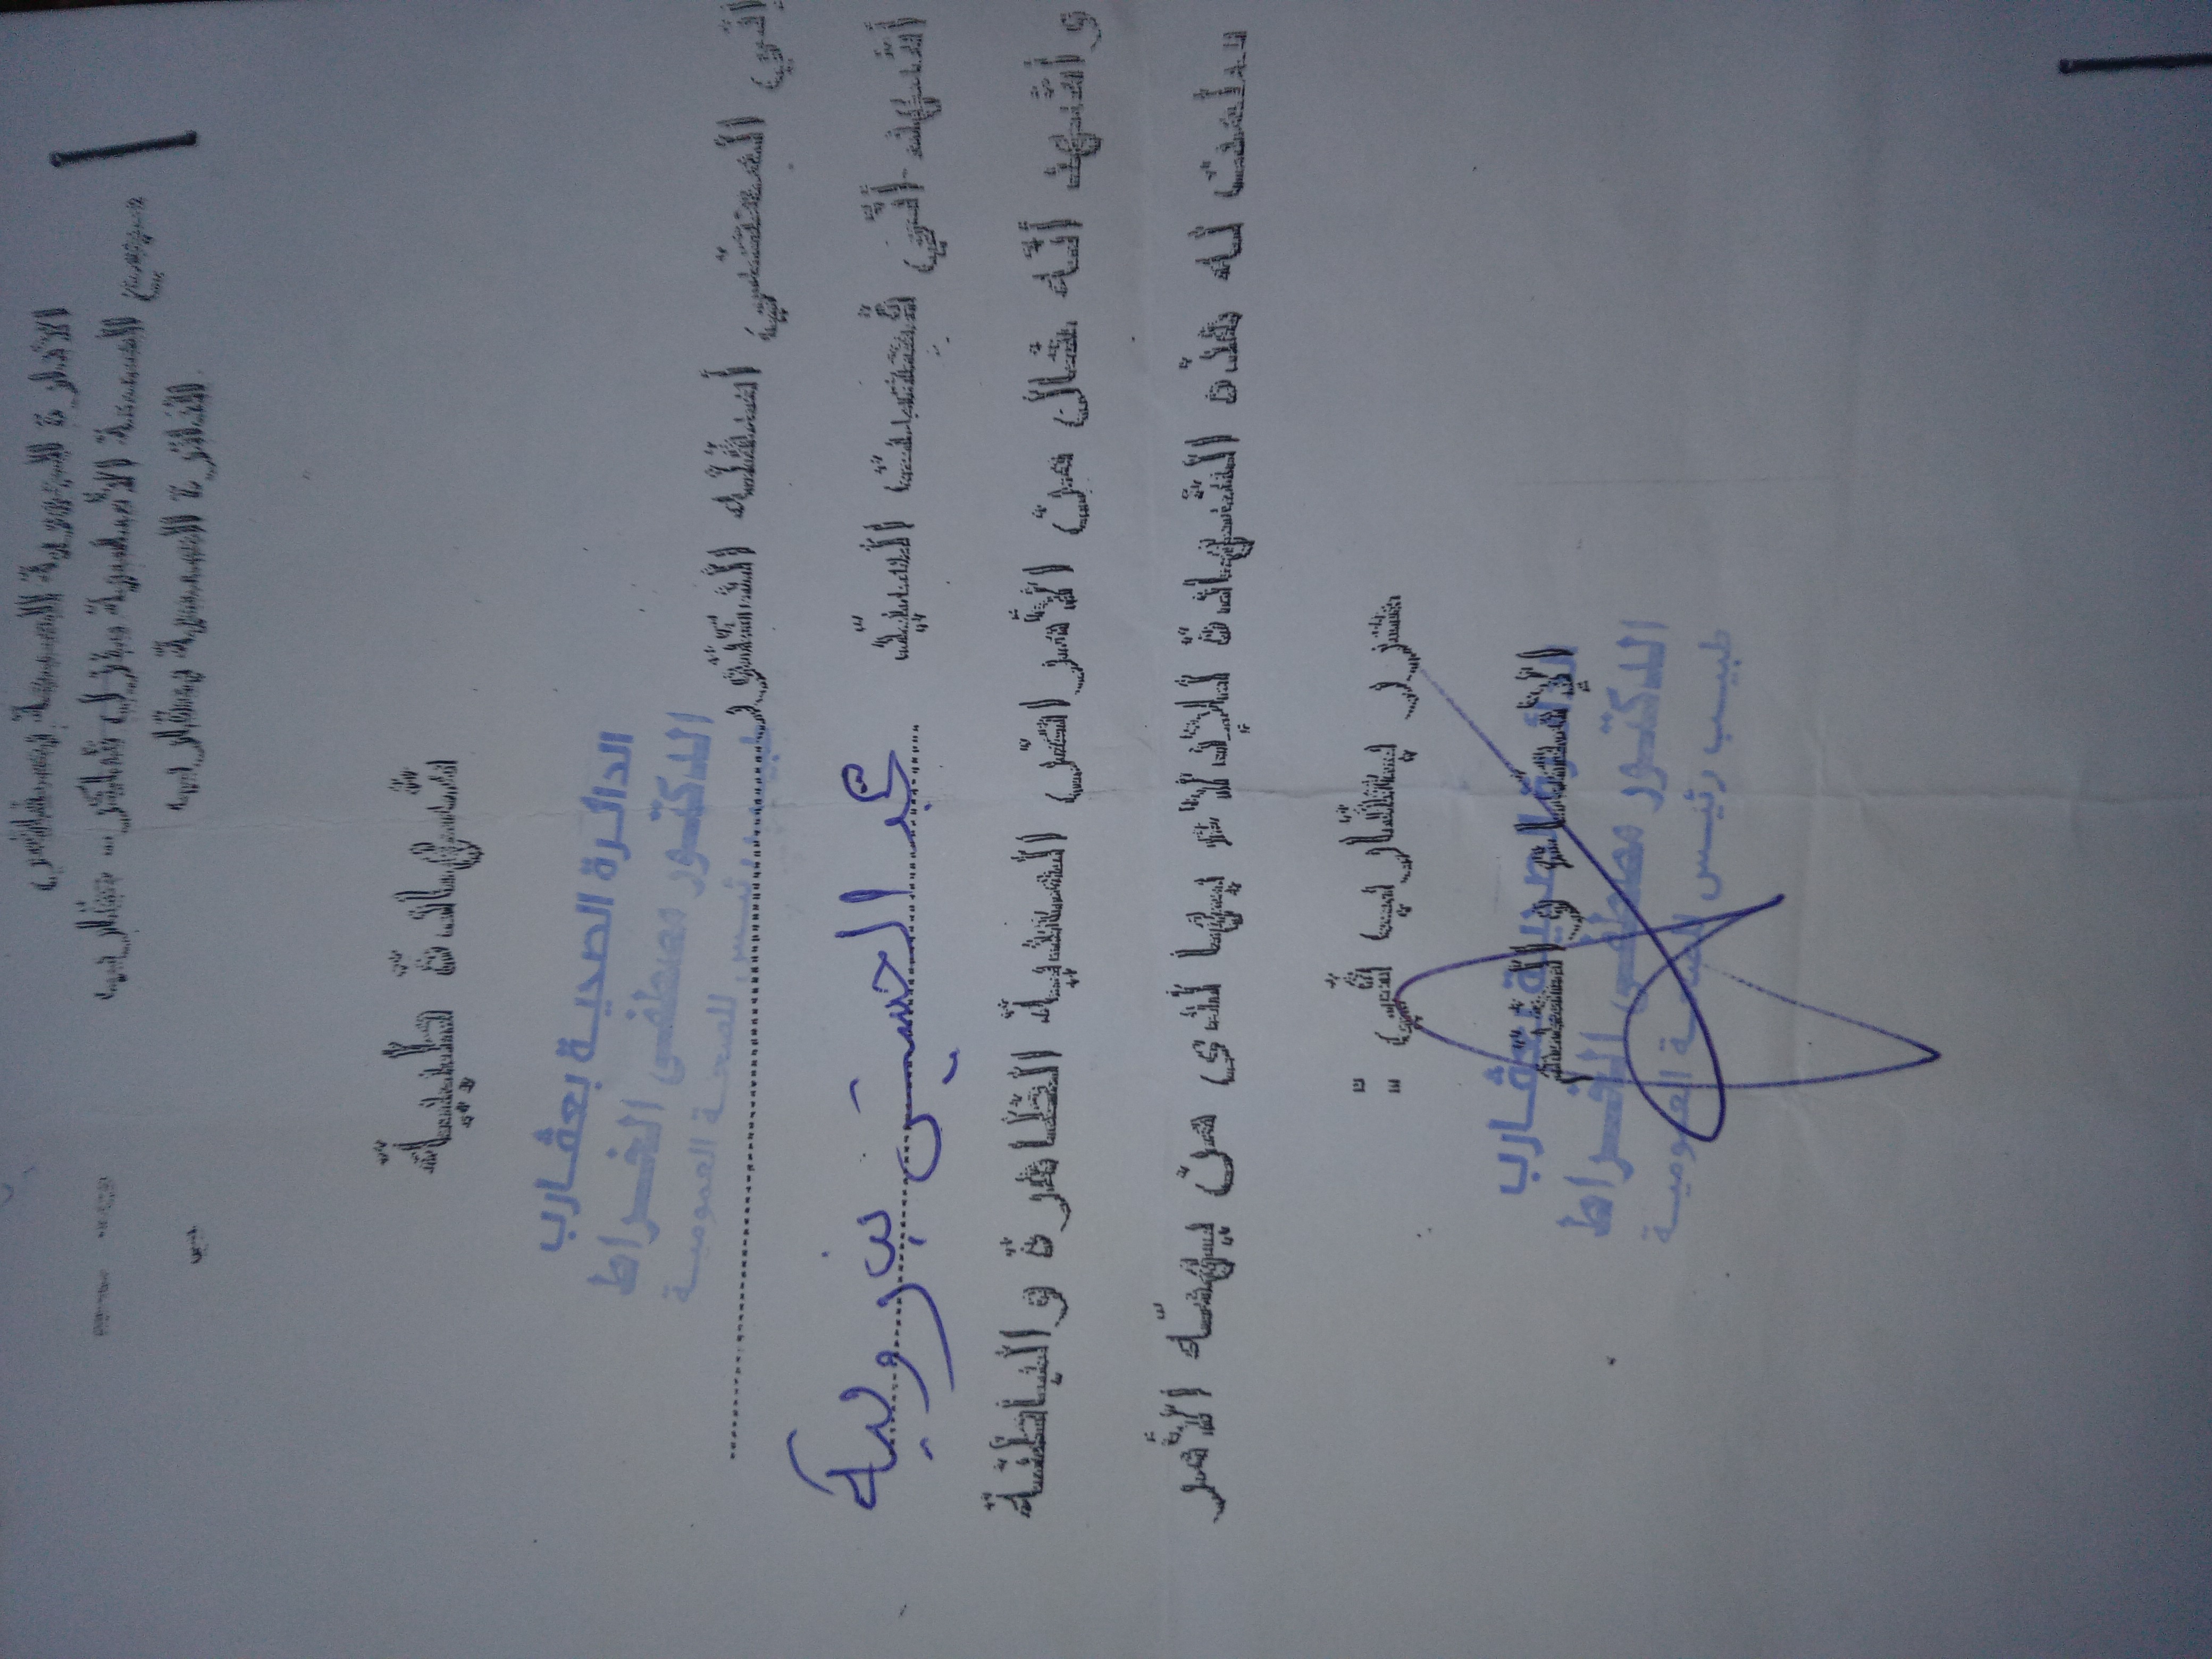 الادارة الجهوية للصحة بصفاقس
مجمع الصحة الأساسية بمنزل شاكر - عقارب
الدائرة الصحية بعقارب
شهادة طبية
الدائرة الصحية بعقارب
الدكتور مصطفى الخراط
للصحة العمومية
إنّي الممضي أسفله الدكتور
أشهد أنّي فحصت السيد عبد الحسيب بن رويبة
و أشهد أنّه خال من الأمراض المعدية الظاهرة و الباطنة
سلمت له هذه الشهادة للإدلاء بها لدى من يهمّه الأمر
حرر بعقارب في :
الإمضاء و الختم
الدائرة الصحية بعقارب
الدكتور مصطفى الخراط
طبيب رئيس للصحة العمومية